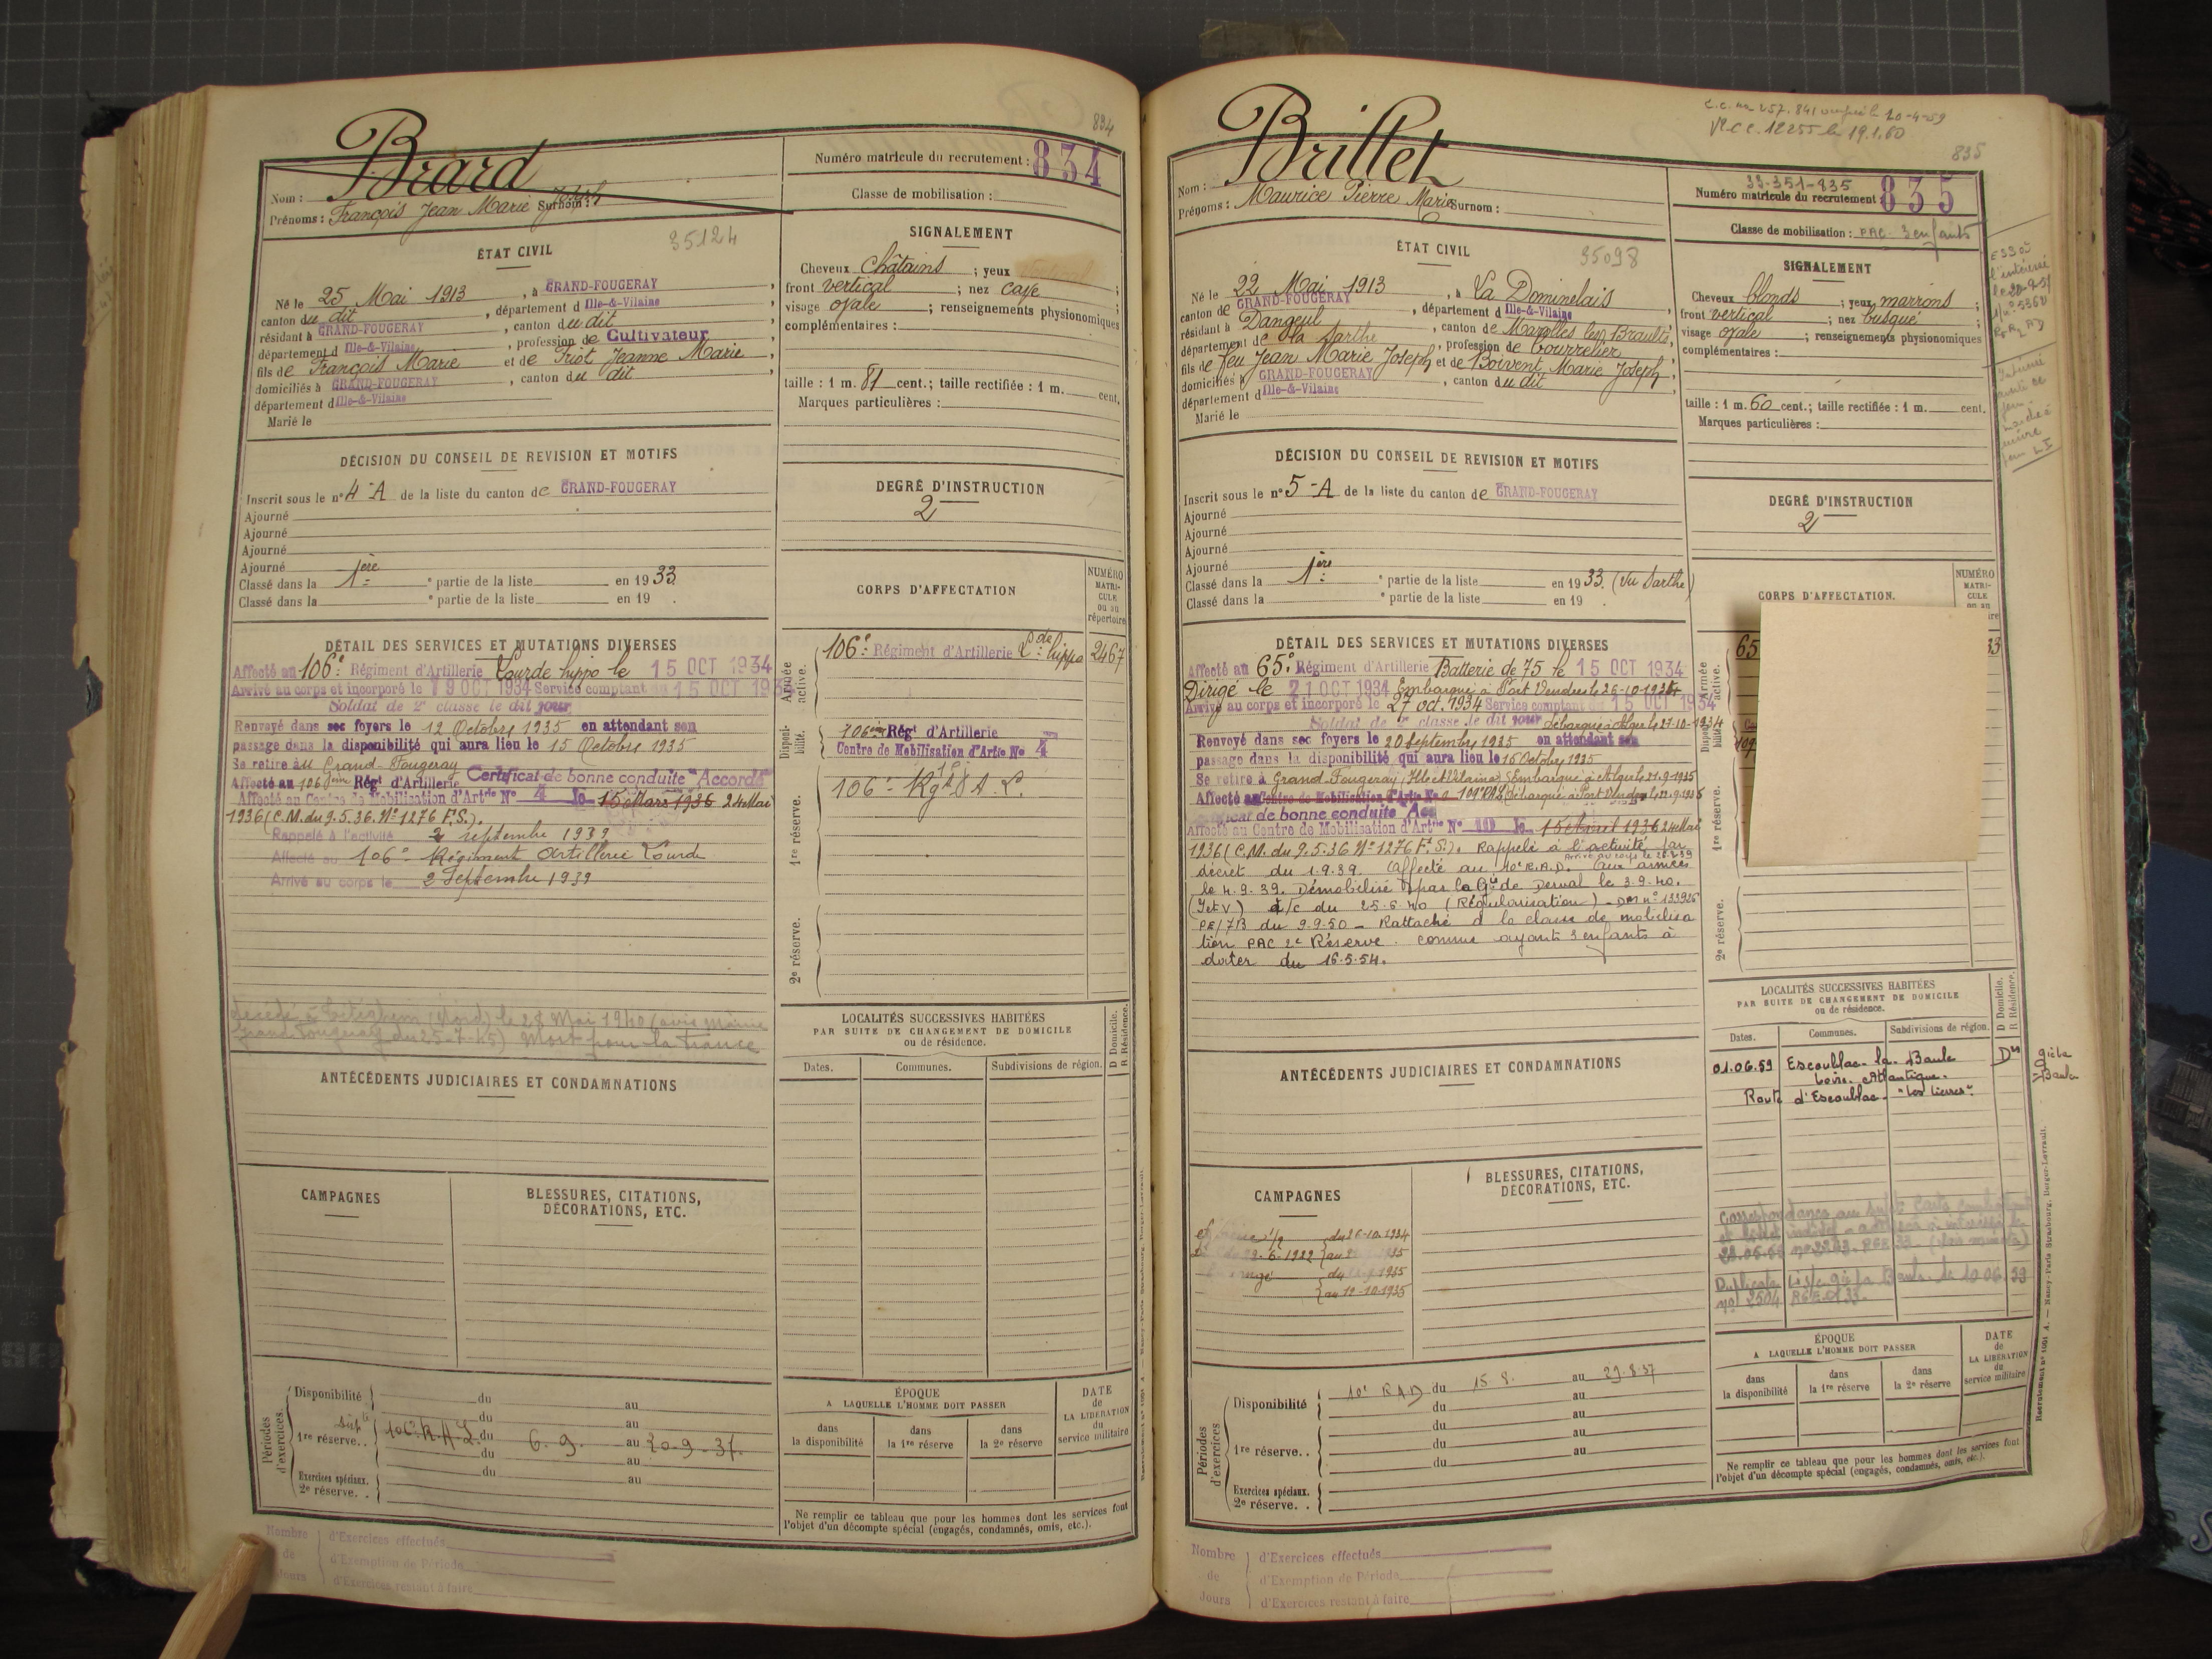 834
Brard
Nom :
Prénoms : François Jean Marie Joseph Surnom :
Numéro matricule du recrutement : 834
Classe de mobilisation :
ÉTAT CIVIL
35124
Né le 25 Mai 1913, à GRAND-FOUGERAY,
canton du dit, département d Ille-&-Vilaine
résidant à GRAND-FOUGERAY, canton du dit,
département d Ille-&-Vilaine, profession de Cultivateur
fils de François Marie et de Triot Jeanne Marie,
domiciliés à GRAND-FOUGERAY, canton du dit,
département d Ille-&-Vilaine
Marié le
SIGNALEMENT
Cheveux châtains ; yeux ;
front vertical ; nez cave ;
visage ovale ; renseignements physionomiques
complémentaires :
taille : 1 m. 81 cent.; taille rectifiée : 1 m. cent.
Marques particulières :
DÉCISION DU CONSEIL DE REVISION ET MOTIFS
Inscrit sous le n° 4-A de la liste du canton de GRAND-FOUGERAY
Ajourné
Ajourné
Ajourné
Ajourné
Classé dans la 1ère e partie de la liste en 1933.
Classé dans la e partie de la liste en 19 .
DEGRÉ D'INSTRUCTION
2
CORPS D'AFFECTATION
NUMÉRO MATRI-CULE ou au répertoire
DÉTAIL DES SERVICES ET MUTATIONS DIVERSES
Affecté au 106e Régiment d'Artillerie Lourde hippo le 15 OCT 1934
Arrivé au corps et incorporé le 19 OCT 1934 Service comptant du 15 OCT 1934
Soldat de 2e classe le dit jour
Renvoyé dans ses foyers le 12 Octobre 1935 en attendant son
passage dans la disponibilité qui aura lieu le 15 Octobre 1935
Se retire à u Grand-Fougeray
Affecté au 106ème Régt d'Artillerie Certificat de bonne conduite "Accordé"
Affecté au Centre de Mobilisation d'Artie N° 4 le 15 Mars 1936 24 Mai
1936 (C.M. du 9.5.36. N° 1276 F.S.).
Rappelé à l'activité 2 septembre 1939
Affecté au 106e Régiment Artillerie Lourde
Arrivé au corps le 2 Septembre 1939
(Nord) le 28 Mai 1940 (avis Mairie
Grand Fougeray du 25-7-45) Mort pour la France
Armée active.
106e Régiment d'Artillerie Lde hippo 2467
Disponibilité.
106ème Régt d'Artillerie
Centre de Mobilisation d'Artie N° 4
1re réserve.
106e Rgt d A. L.
2e réserve.
LOCALITÉS SUCCESSIVES HABITÉES
PAR SUITE DE CHANGEMENT DE DOMICILE
ou de résidence.
Dates. Communes. Subdivisions de région.
D Domicile. R Résidence.
ANTÉCÉDENTS JUDICIAIRES ET CONDAMNATIONS
CAMPAGNES
BLESSURES, CITATIONS, DÉCORATIONS, ETC.
Périodes d'exercices.
Disponibilité du au
du au
1re réserve.. 106e R.A.L. du 6.9. au 20-9-37.
du au
Exercices spéciaux. du au
2e réserve. .
ÉPOQUE
A LAQUELLE L'HOMME DOIT PASSER
dans la disponibilité
dans la 1re réserve
dans la 2e réserve
DATE de LA LIBÉRATION du service militaire
Ne remplir ce tableau que pour les hommes dont les services font
l'objet d'un décompte spécial (engagés, condamnés, omis, etc.).
Nombre de Jours
d'Exercices effectués
d'Exemption de Période
d'Exercices restant à faire
20-4-59
C.C. 12255 le 19.1.60
835
Brillet
Nom :
Prénoms : Maurice Pierre Marie Surnom :
33-351-835
Numéro matricule du recrutement : 835
Classe de mobilisation : PAC 3 enfants
ÉTAT CIVIL
35098
Né le 22 Mai 1913, à La Dominelais,
canton de GRAND-FOUGERAY, département d Ille-&-Vilaine
résidant à Dangeul, canton de Marolles les Braults,
département de la Sarthe, profession de bourrelier,
fils de feu Jean Marie Joseph et de Boivent Marie Joseph,
domiciliés à GRAND-FOUGERAY, canton du dit,
département d Ille-&-Vilaine
Marié le
SIGNALEMENT
Cheveux blonds ; yeux marrons ;
front vertical ; nez busqué ;
visage ovale ; renseignements physionomiques
complémentaires :
taille : 1 m. 60 cent.; taille rectifiée : 1 m. cent.
Marques particulières :
DÉCISION DU CONSEIL DE REVISION ET MOTIFS
Inscrit sous le n° 5-A de la liste du canton de GRAND-FOUGERAY
Ajourné
Ajourné
Ajourné
Ajourné
Classé dans la 1ère e partie de la liste en 1933. (Vu Sarthe)
Classé dans la e partie de la liste en 19 .
DEGRÉ D'INSTRUCTION
2
CORPS D'AFFECTATION.
NUMÉRO MATRI-CULE ou au
65
33
DÉTAIL DES SERVICES ET MUTATIONS DIVERSES
Affecté au 65e Régiment d'Artillerie Batterie de 75 le 15 OCT 1934
Dirigé le 21 OCT 1934 Embarqué à Port Vendres le 26-10-1934
Arrivé au corps et incorporé le 27 oct. 1934 Service comptant du 15 OCT 1934
Soldat de 2e classe le dit jour débarqué à Alger le 27-10-1934
Renvoyé dans ses foyers le 20 Septembre 1935 en attendant son
passage dans la disponibilité qui aura lieu le 15 Octobre 1935
Se retire à Grand-Fougeray (Ille et Vilaine) Embarqué à Alger le 21-9-1935
Affecté au Centre de Mobilisation d'Artie N°
Certificat de bonne conduite
Affecté au Centre de Mobilisation d'Artie N° 10 le 15 Avril 1936 24 Mai
1936 (C.M. du 9.5.36 N° 1276 F.S.). Rappelé à l'activité par
décret du 1.9.39. Affecté au 10e R.A.D. Aux armées
le 4.9.39. Démobilisé par la Gie de Derval le 3.9.40.
(I et V) à/c du 25.6.40 (Régularisation) - DM n° 133926
PE/7B du 9.9.50 - Rattaché à la classe de mobilisa
tion PAC 2e Réserve. comme ayant 3 enfants à
dater du 16.5.54.
Armée active.
Disponibilité.
1re réserve.
2e réserve.
LOCALITÉS SUCCESSIVES HABITÉES
PAR SUITE DE CHANGEMENT DE DOMICILE
ou de résidence.
Dates. Communes. Subdivisions de région.
D Domicile. R Résidence.
01.06.59 Escoublac-la-Baule
Loire-Atlantique.
Route d'Escoublac
ANTÉCÉDENTS JUDICIAIRES ET CONDAMNATIONS
CAMPAGNES
du 26-10-1934
BLESSURES, CITATIONS, DÉCORATIONS, ETC.
au 12-10-1935
Périodes d'exercices
Disponibilité 10e RAD du 15 8. au 29.8.37
du au
1re réserve.. du au
du au
Exercices spéciaux.
2e réserve. .
ÉPOQUE
A LAQUELLE L'HOMME DOIT PASSER
dans la disponibilité
dans la 1re réserve
dans la 2e réserve
DATE de LA LIBÉRATION du service militaire
Ne remplir ce tableau que pour les hommes dont les services font
l'objet d'un décompte spécial (engagés, condamnés, omis, etc.).
Recrutement n° 1051 A. — Nancy-Paris Strasbourg, Berger-Levrault.
Nombre de Jours
d'Exercices effectués
d'Exemption de Période
d'Exercices restant à faire